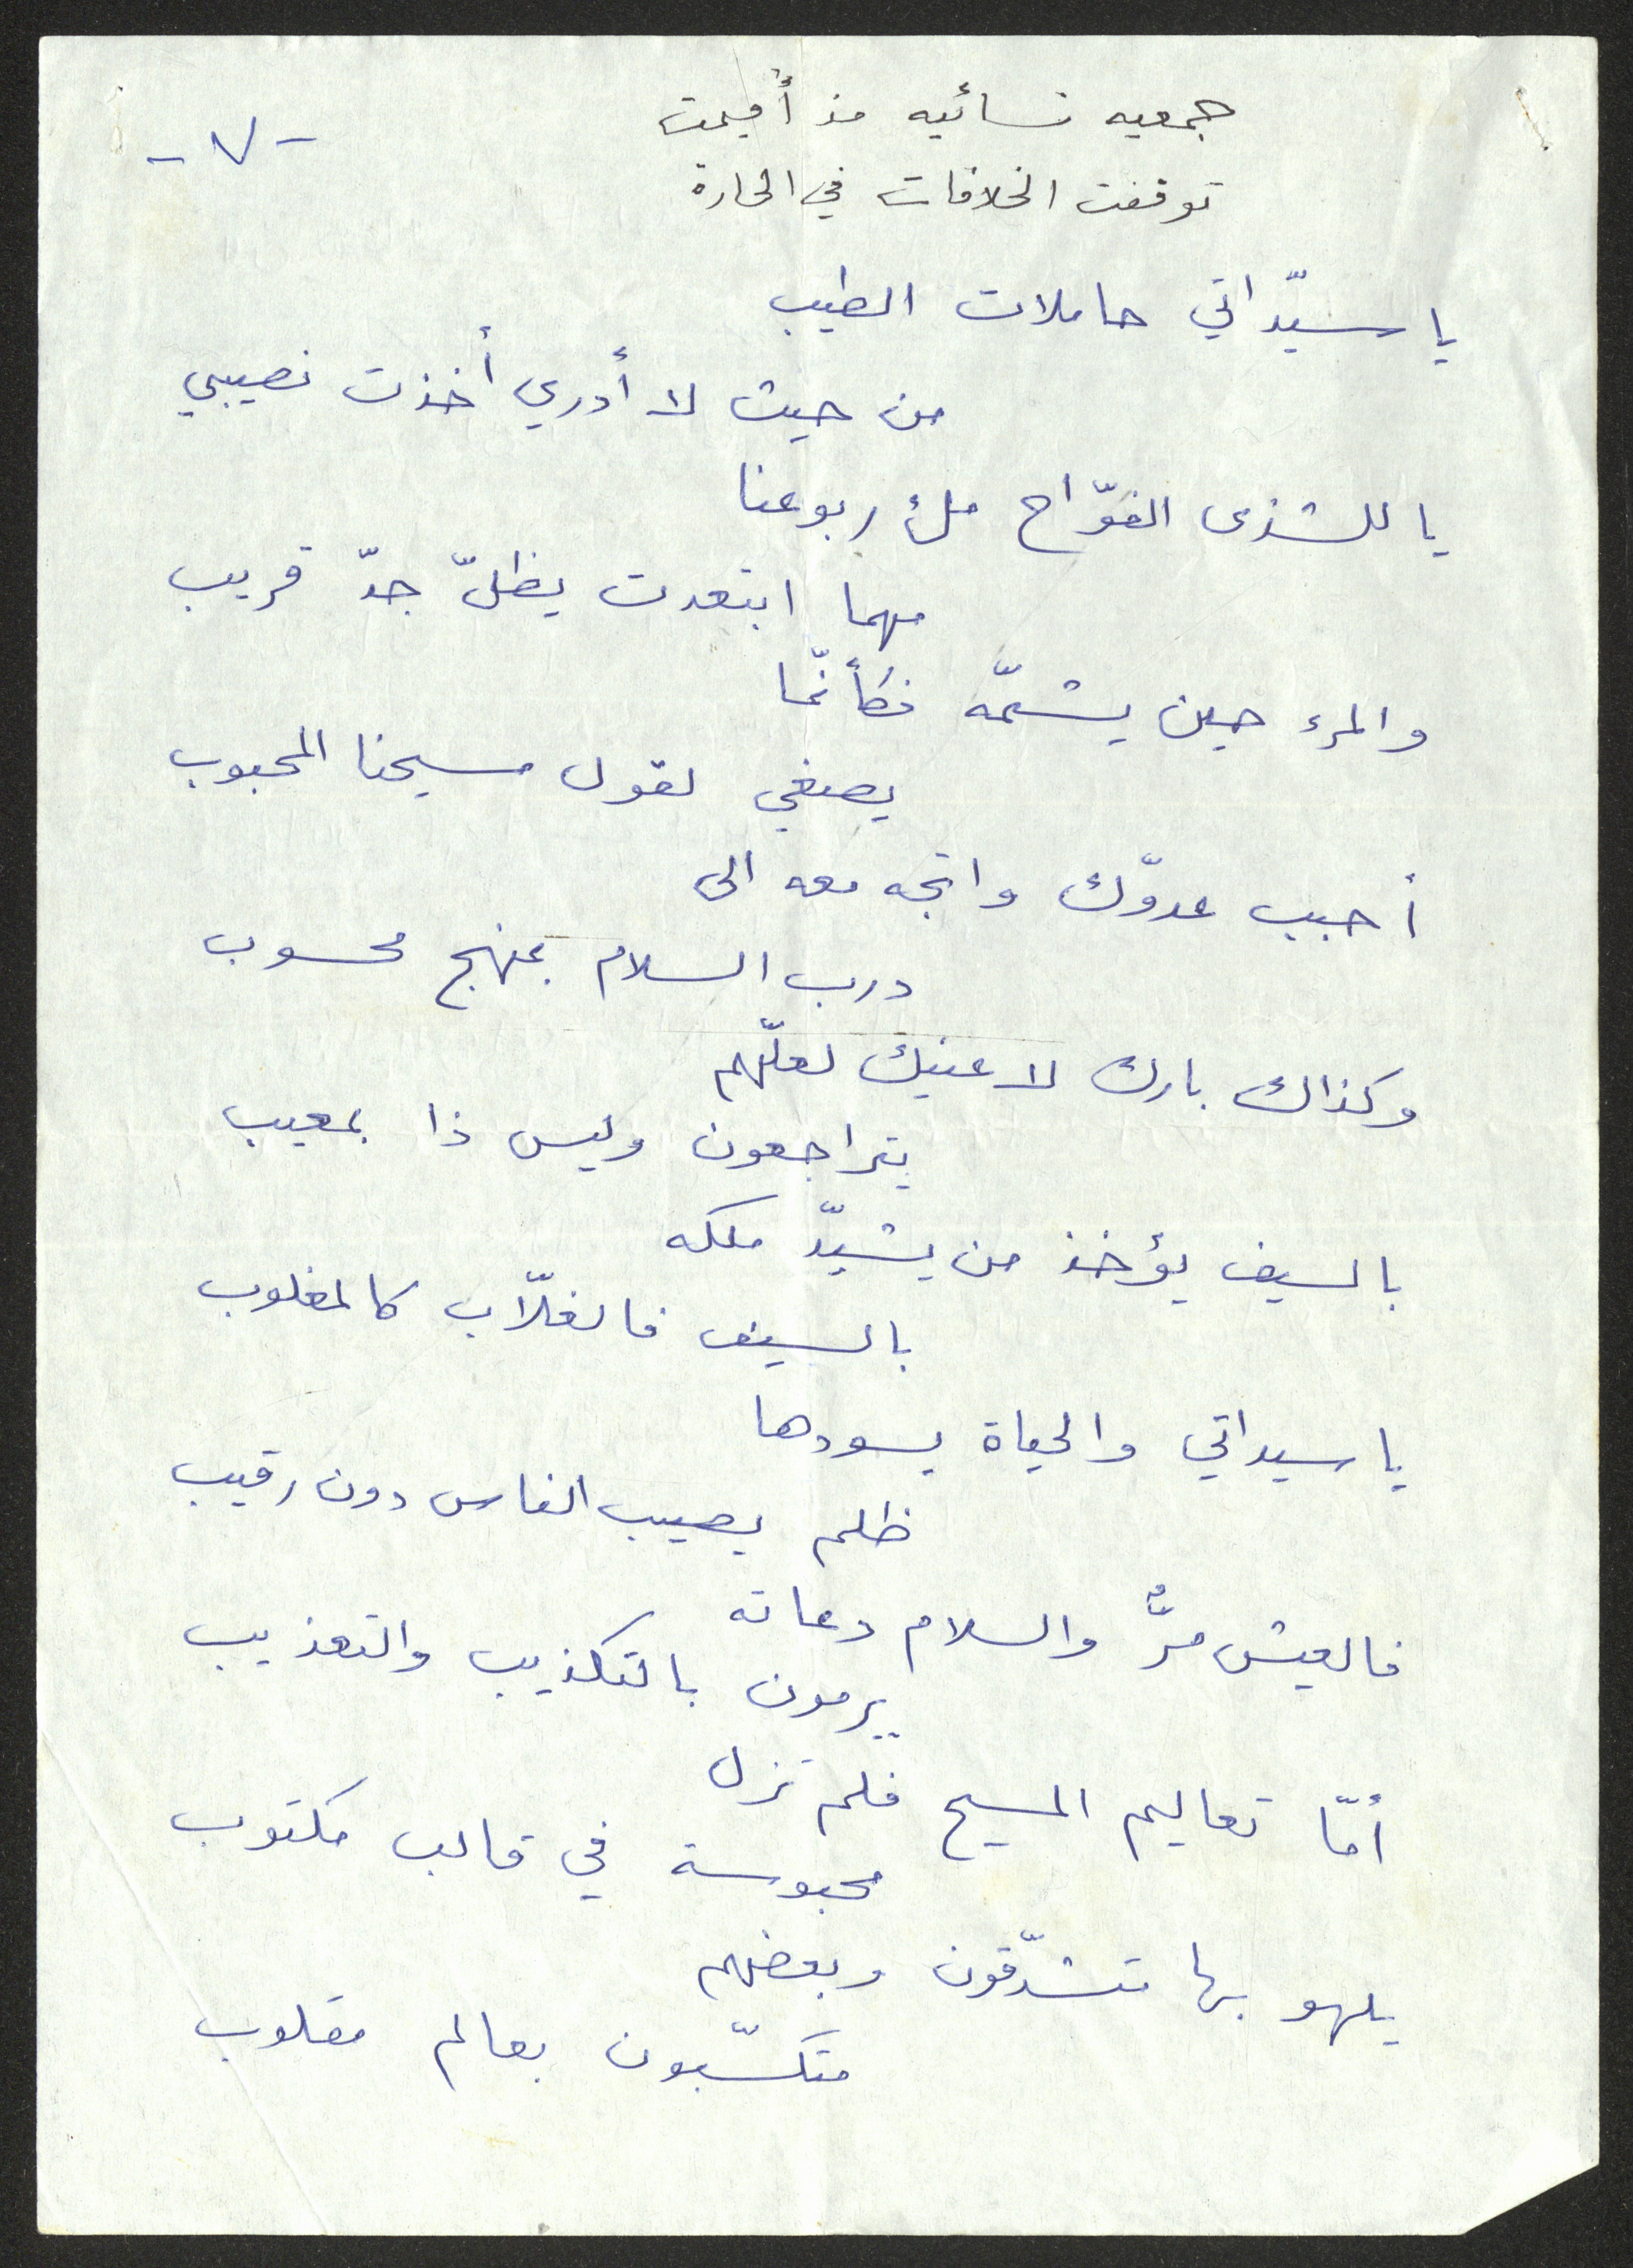 جمعيه نسائيه مذ أُقيمت
-٧-
توقفت الخلافات في الحارة
يا سيّداتي حاملات الطيب
من حيث لا أدري أخذت نصيبي
يا للشذى الفوّاح ملء ربوعنا
مهما ابتعدت يظلّ جدّ قريب
والمرء حين يشمّه فكأنّما
يصغي لقول مسيحنا المحبوب
أحبب عدوّك واتجه معه الى
درب السلام بمنهج محسوب
وكذاك بارك لاعنيك لعلّهم
يتراجعون وليس ذا بمعيب
بالسيف يؤخذ من يشيّد ملكه
بالسيف فالغلّاب كالمغلوب
يا سيداتي والحياة يسودها
ظلم يصيب الناس دون رقيب
فالعيش مرٌّ والسلام دعاته
يرمون بالتكذيب والتعذيب
أمّا تعاليم المسيح فلم تزل
محبوسة في قالب مكتوب
يلهو بها متشدّقون وبعضهم
متكسّبون بعالم مقلوب